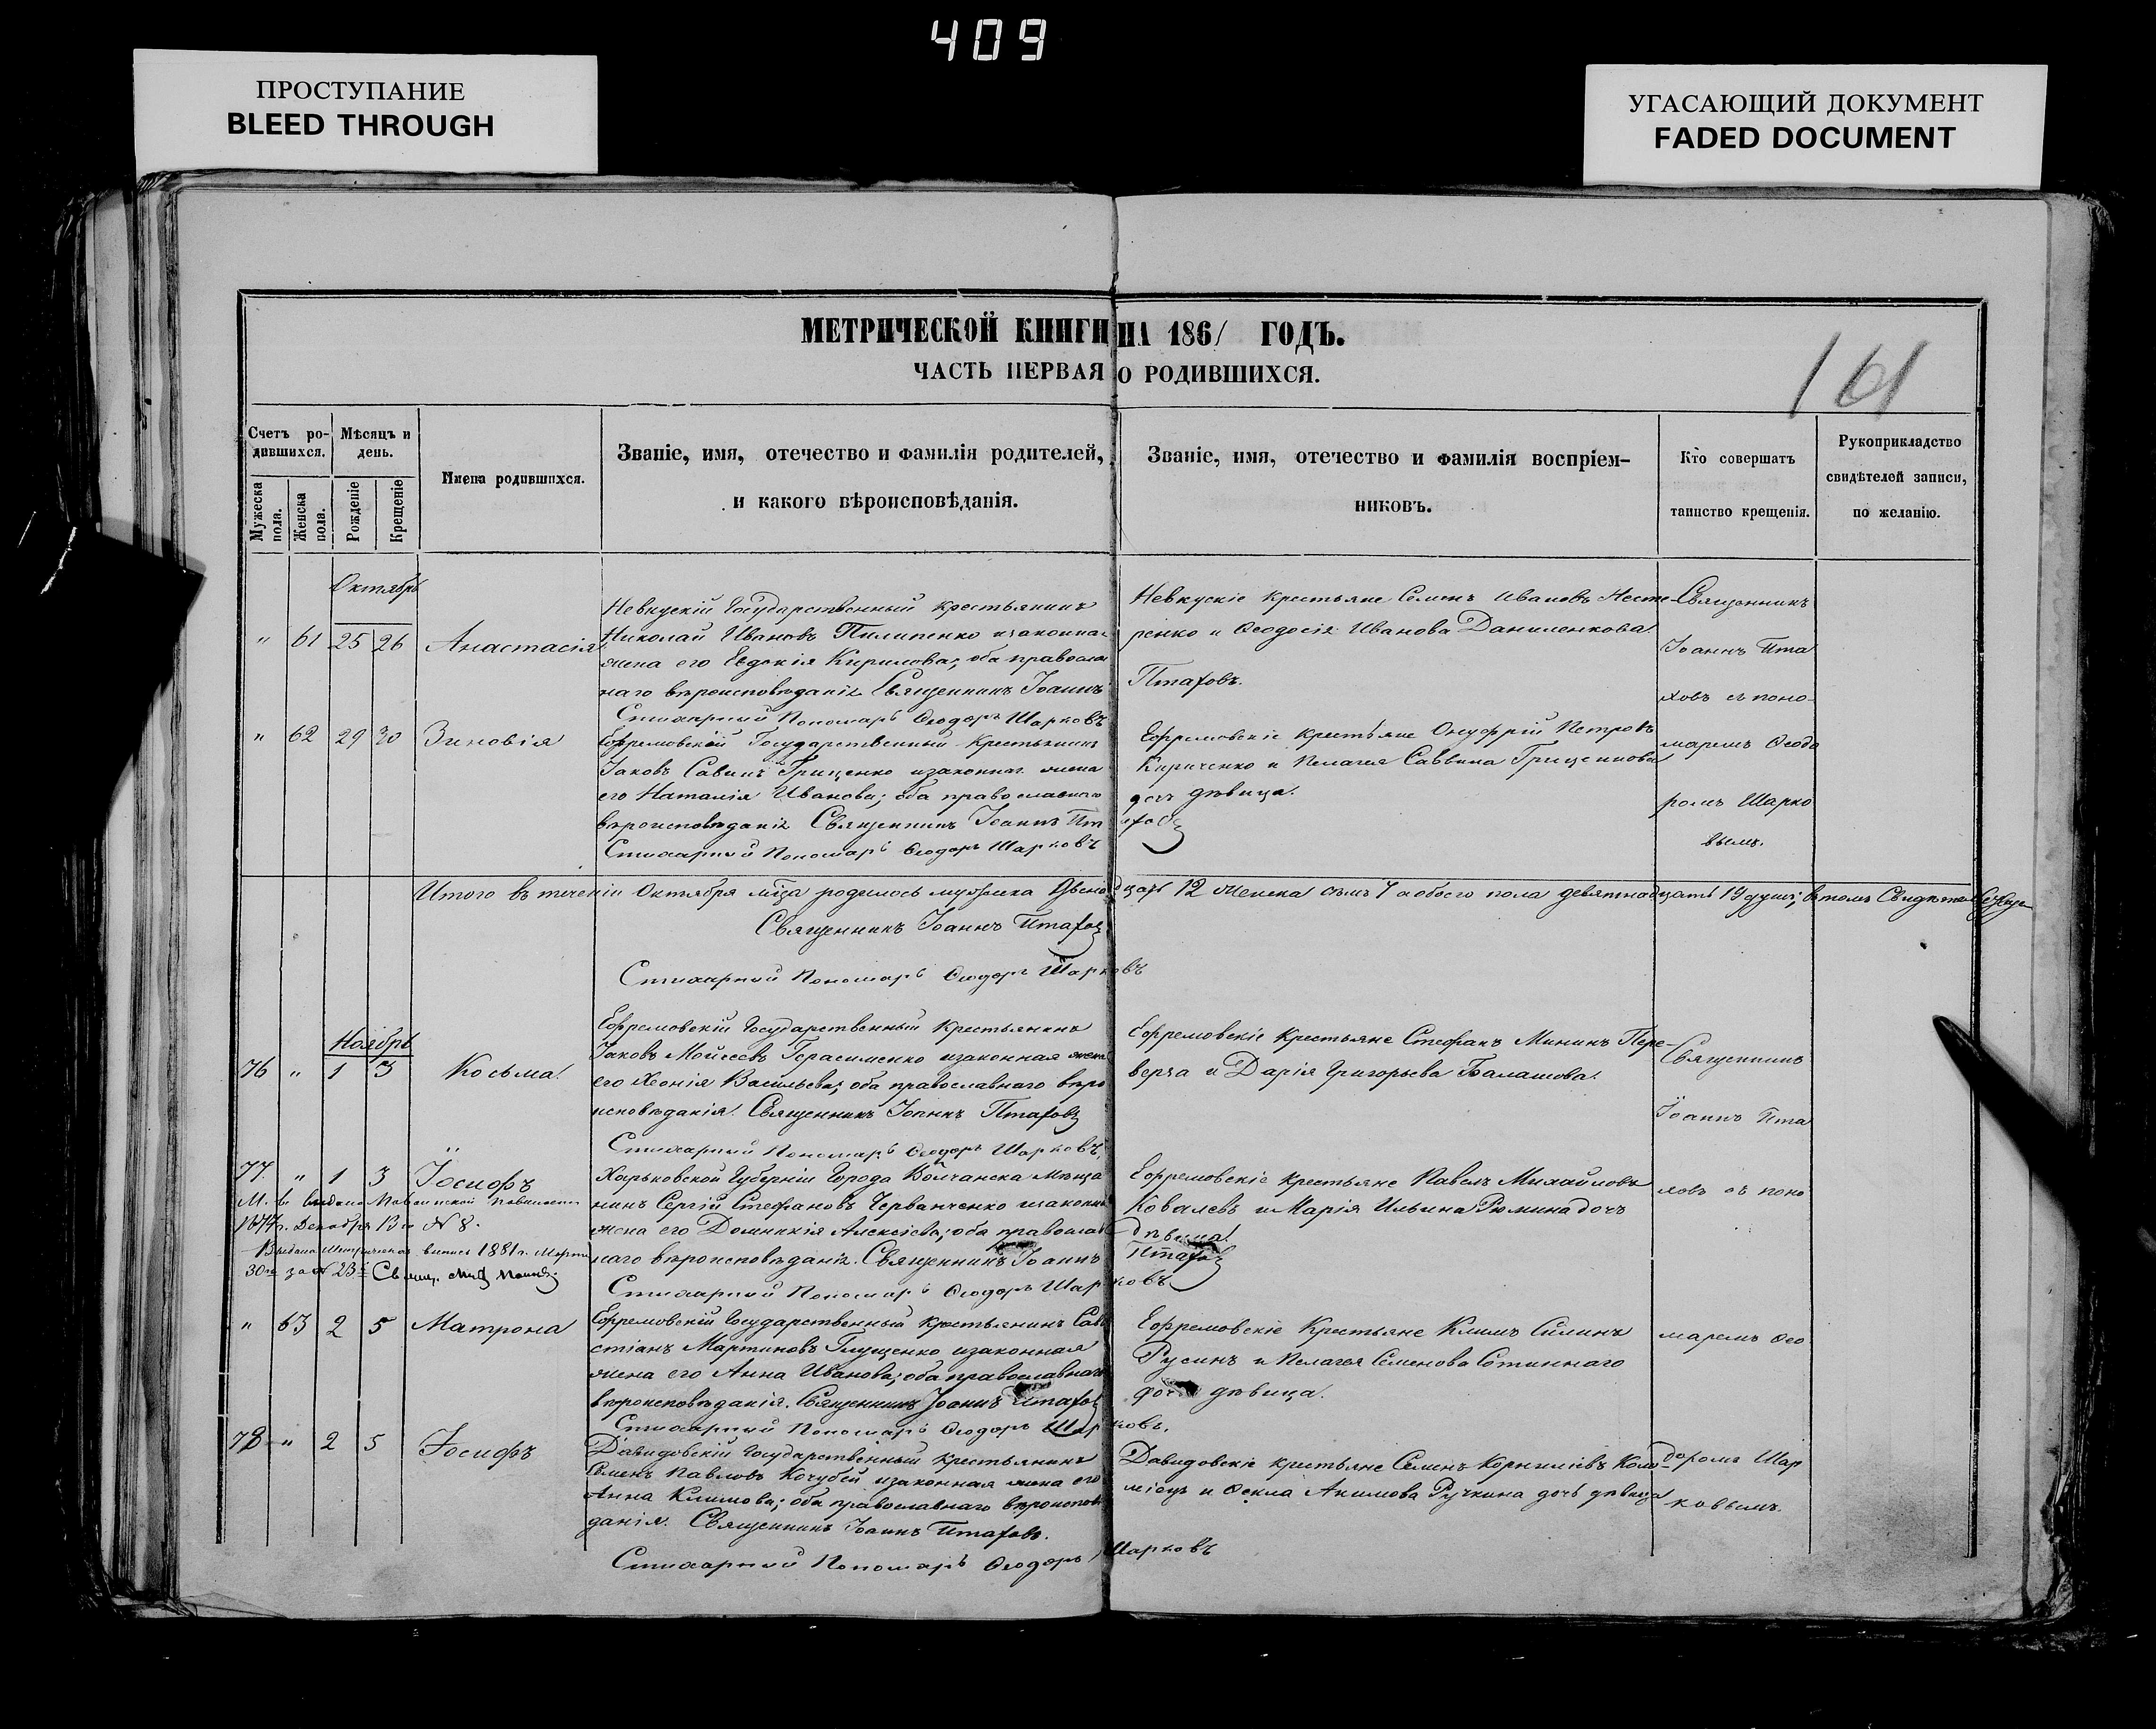 409
ПРОСТУПАНИЕ
BLEED THROUGH
УГАСАЮЩИЙ ДОКУМЕНТ
FADED DOCUMENT
МЕТРИЧЕСКОЙ КНИГИ НА 1861 ГОДЪ.
161
ЧАСТЬ ПЕРВАЯ О РОДИВШИХСЯ.
Счетъ ро-
дившихся.
Мужеска пола.
Женска пола.
Мѣсяцъ и
день.
Рожденіе
Крещеніе
Имена родившихся.
Званіе, имя, отечество и фамилія родителей,
и какого вѣроисповѣданія.
Званіе, имя, отечество и фамилія воспріем-
никовъ.
Кто совершатъ
таинство крещенія.
Рукоприкладство
свидѣтелей записи,
по желанію.
Октябрь
" 61 25 26 Анастасія
Невкускій Государственный крестьянинъ
Николай Ивановъ Пилипенко изаконная
жена его Евдокія Кирилова; оба православ
наго вѣроисповѣданія Священникъ Іоаннъ
Птаховъ.
Стихарный Пономарь Ѳеодоръ Шарковъ
Невкускіе Крестьяне Семенъ Ивановъ Несте
ренко и Ѳеодосія Иванова Даниленкова.
" 62 29 30 Зиновія
Ефремовскій Государственный Крестьянинъ
Іаковъ Савинъ Гриценко изаконная жена
его Наталія Иванова; оба православнаго
вѣроисповѣданія Священникъ Іоаннъ Птаховъ
Стихарный Пономарь Ѳеодоръ Шарковъ
Ефремовскіе крестьяне Онуфрій Петровъ
Кириченко и Пелагея Саввина Гриценкова
дочь дѣвица.
Священникъ
Іоаннъ Пта
ховъ съ поно-
маремъ Ѳеодо
ромъ Шарко
вымъ.
Итого въ теченіи Октября мѣсца родилось мужеска двенадцать 12 женска семь 7 а обоего пола девятнадцать 19 душъ; втомъ
Священникъ Іоаннъ Птаховъ
Стихарный Пономарь Ѳеодоръ Шарковъ
Ноябрь
76 " 1 3 Косьма.
Ефремовскій Государственный Крестьянинъ
Іаковъ Мойсеевъ Герасименко изаконная жена
его Хеонія Васильева; оба православнаго вѣро
исповѣданія. Священникъ Іоаннъ Птаховъ
Стихарный Пономарь Ѳеодоръ Шарковъ.
Ефремовскіе Крестьяне Стефанъ Мининъ Пере-
верза и Дарія Григорьева Балашова.
77. " 1 3 Іосифъ
1877г. Декабря 13го N 8.
1881г. Марта
30го за N 23
Харьковской Губерніи Города Волчанска мѣща
нинъ Сергій Стефановъ Черванченко изаконная
жена его Домникія Алексіева; оба православ
наго вѣроисповѣданія. Священникъ Іоаннъ
Птаховъ
Стихарный Пономарь Ѳеодоръ Шарковъ
Ефремовскіе крестьяне Павелъ Михайловъ
Ковалевъ и Марія Ильина Рюмина дочь
дѣвица.
" 63 2 5 Матрона
Ефремовскій Государственный Крестьянинъ Сава
стіанъ Мартиновъ Глущенко изаконная
жена его Анна Иванова; оба православнаго
вѣроисповѣданія. Священникъ Іоаннъ Птаховъ
Стихарный Пономарь Ѳеодоръ Шарковъ.
Ефремовскіе Крестьяне Климъ Силинъ
Русинъ и Пелагея Семенова Сотниннаго
дочь дѣвица.
78 " 2 5 Іосифъ
Давидовскій Государственный Крестьянинъ
Семенъ Павловъ Кочубей изаконная жена его
Анна Климова; оба православнаго вѣроисповѣ
данія. Священникъ Іоаннъ Птаховъ.
Стихарный Пономарь Ѳеодоръ Шарковъ
Давидовскіе крестьяне Семенъ Корниліевъ Коло-
міецъ и Ѳекла Акимова Ручкина дочь дѣвица
Священникъ
Іоаннъ Пта
ховъ съ поно
маремъ Ѳео
доромъ Шар
ковымъ.